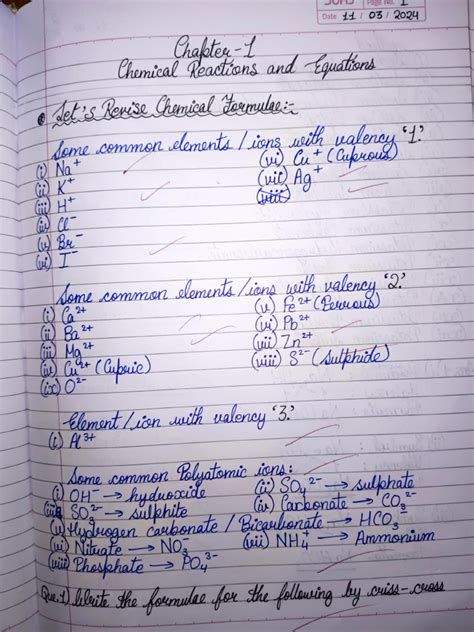 Page No. 1
Date 11 / 03 / 2024
Chapter-1
Chemical Reactions and Equations
Let's Revise Chemical Formulae:-
Some common elements / ions with valency '1'.
(i) Na⁺ (vi) Cu⁺ (Cuprous)
(ii) K⁺ (vii) Ag⁺
(iii) H⁺ (viii)
(iv) Cl⁻
(v) Br⁻
(vi) I⁻
Some common elements / ions with valency '2'.
(i) Ca²⁺ (v) Fe²⁺ (Ferrous)
(ii) Ba²⁺ (vi) Pb²⁺
(iii) Mg²⁺ (vii) Zn²⁺
(iv) Cu²⁺ (Cupric) (viii) S²⁻ (Sulphide)
(ix) O²⁻
Element / ion with valency '3'.
(i) Al³⁺
Some common Polyatomic ions:
(i) OH⁻ → hydroxide (ii) SO₄²⁻ → sulphate
(iii) SO₃²⁻ → sulphite (iv) Carbonate → CO₃²⁻
(v) Hydrogen carbonate / Bicarbonate → HCO₃⁻
(vi) Nitrate → NO₃⁻ (vii) NH₄⁺ → Ammonium
(viii) Phosphate → PO₄³⁻
Que.1) Write the formulae for the following by criss-cross